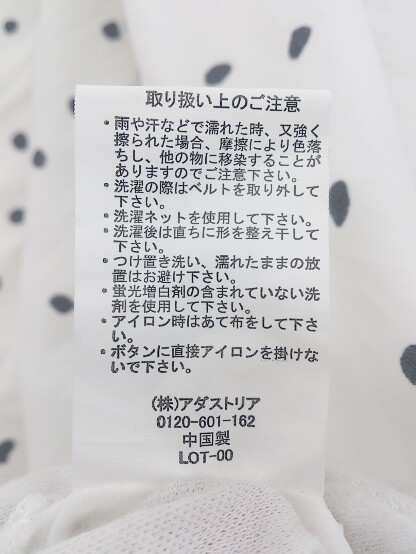 取り扱い上のご注意
・雨や汗などで濡れた時、又強く
擦られた場合、摩擦により色落
ちし、他の物に移染することが
ありますのでご注意下さい。
・洗濯の際はベルトを取り外して
下さい。
・洗濯ネットを使用して下さい。
・洗濯後は直ちに形を整え干して
下さい。
・つけ置き洗い、濡れたままの放
置はお避け下さい。
・蛍光増白剤の含まれていない洗
剤を使用して下さい。
・アイロン時はあて布をして下さ
い。
・ボタンに直接アイロンを掛けな
いで下さい。
(株)アダストリア
0120-601-162
中国製
LOT-00